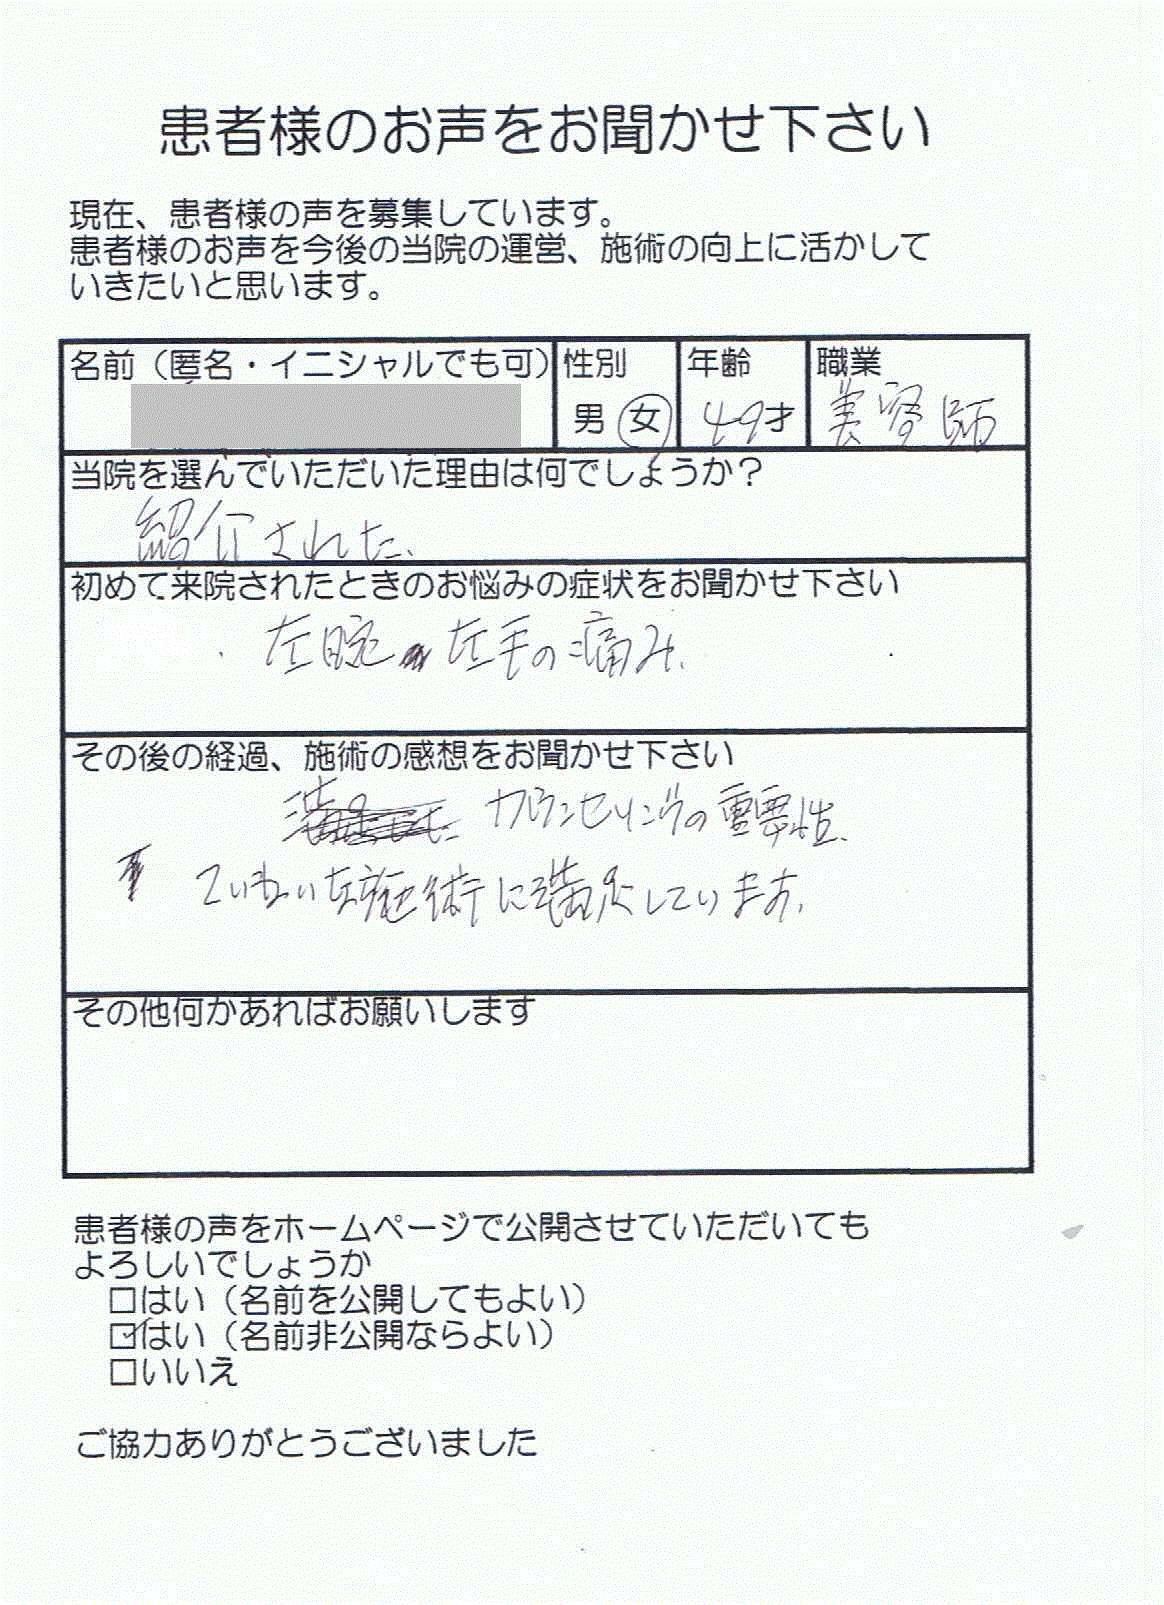 患者様のお声をお聞かせ下さい
現在、患者様の声を募集しています。
患者様のお声を今後の当院の運営、施術の向上に活かして
いきたいと思います。
名前（匿名・イニシャルでも可） 性別 年齢 職業
男 女 49才 美容師
当院を選んでいただいた理由は何でしょうか？
紹介された、
初めて来院されたときのお悩みの症状をお聞かせ下さい
左腕 左手の痛み、
その後の経過、施術の感想をお聞かせ下さい
カウンセリングの重要性、
ていねいな施術に満足しています。
その他何かあればお願いします
患者様の声をホームページで公開させていただいても
よろしいでしょうか
□はい（名前を公開してもよい）
☑はい（名前非公開ならよい）
□いいえ
ご協力ありがとうございました